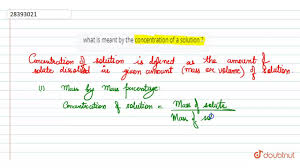 28393021
what is meant by the concentration of a solution ?
Concentration of solution is defined as the amount of
solute dissolved in given amount (mass or volume) of solution.
(i) Mass by Mass percentage:
Concentration of solution = Mass of solute
Mass of so
doubtnut